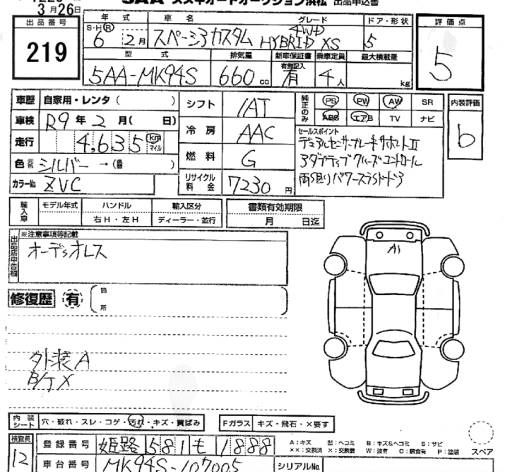 3月26日
スズキオートオークション浜松 出品申込書
出品番号
219
年式 車名 グレード ドア・形状
S・H・R 6年2月 スペーシアカスタム HYBRID XS 4WD 5
型式 排気量 新車保証書 乗車定員 最大積載量
有無記入
5AA-MK94S 660cc 有 4人 kg
評価点
5
車歴 自家用・レンタ( )
車検 R9年2月( 日)
走行 4,635 km マイル
色 シルバー →( )
カラーNo. ZVC
シフト IAT
冷房 AAC
燃料 G
リサイクル料金 7230円
純正のみ PS PW AW SR
ABS エアB TV ナビ
セールスポイント
デュアルセンサーブレーキサポートⅡ
アダプティブクルーズコントロール
両側パワースライドドア
内装評価
b
輸入車 モデル年式 ハンドル 輸入区分
右H・左H ディーラー・並行
書類有効期限
月 日迄
※注意事項等記載
オーディオレス
修復歴 有 箇所
A1
外装A
B/T X
内装シート 穴・破れ・スレ・コゲ・汚れ・キズ・質ばみ
Fガラス キズ・飛石・×要す
スペア
検査員 12
登録番号 姫路 581 も 1888
A:キズ U:ヘコミ B:キズ&ヘコミ S:サビ
XX:交換済 W:波有 C:腐食有 P:塗装
車台番号 MK94S-107005
シリアルNo.